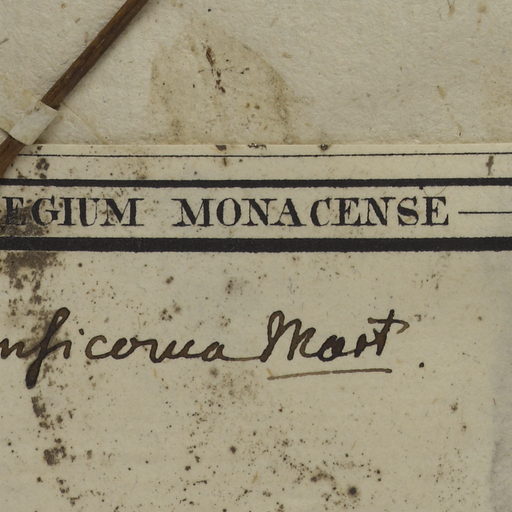 EGIUM MONACENSE
nsicorua Mart.